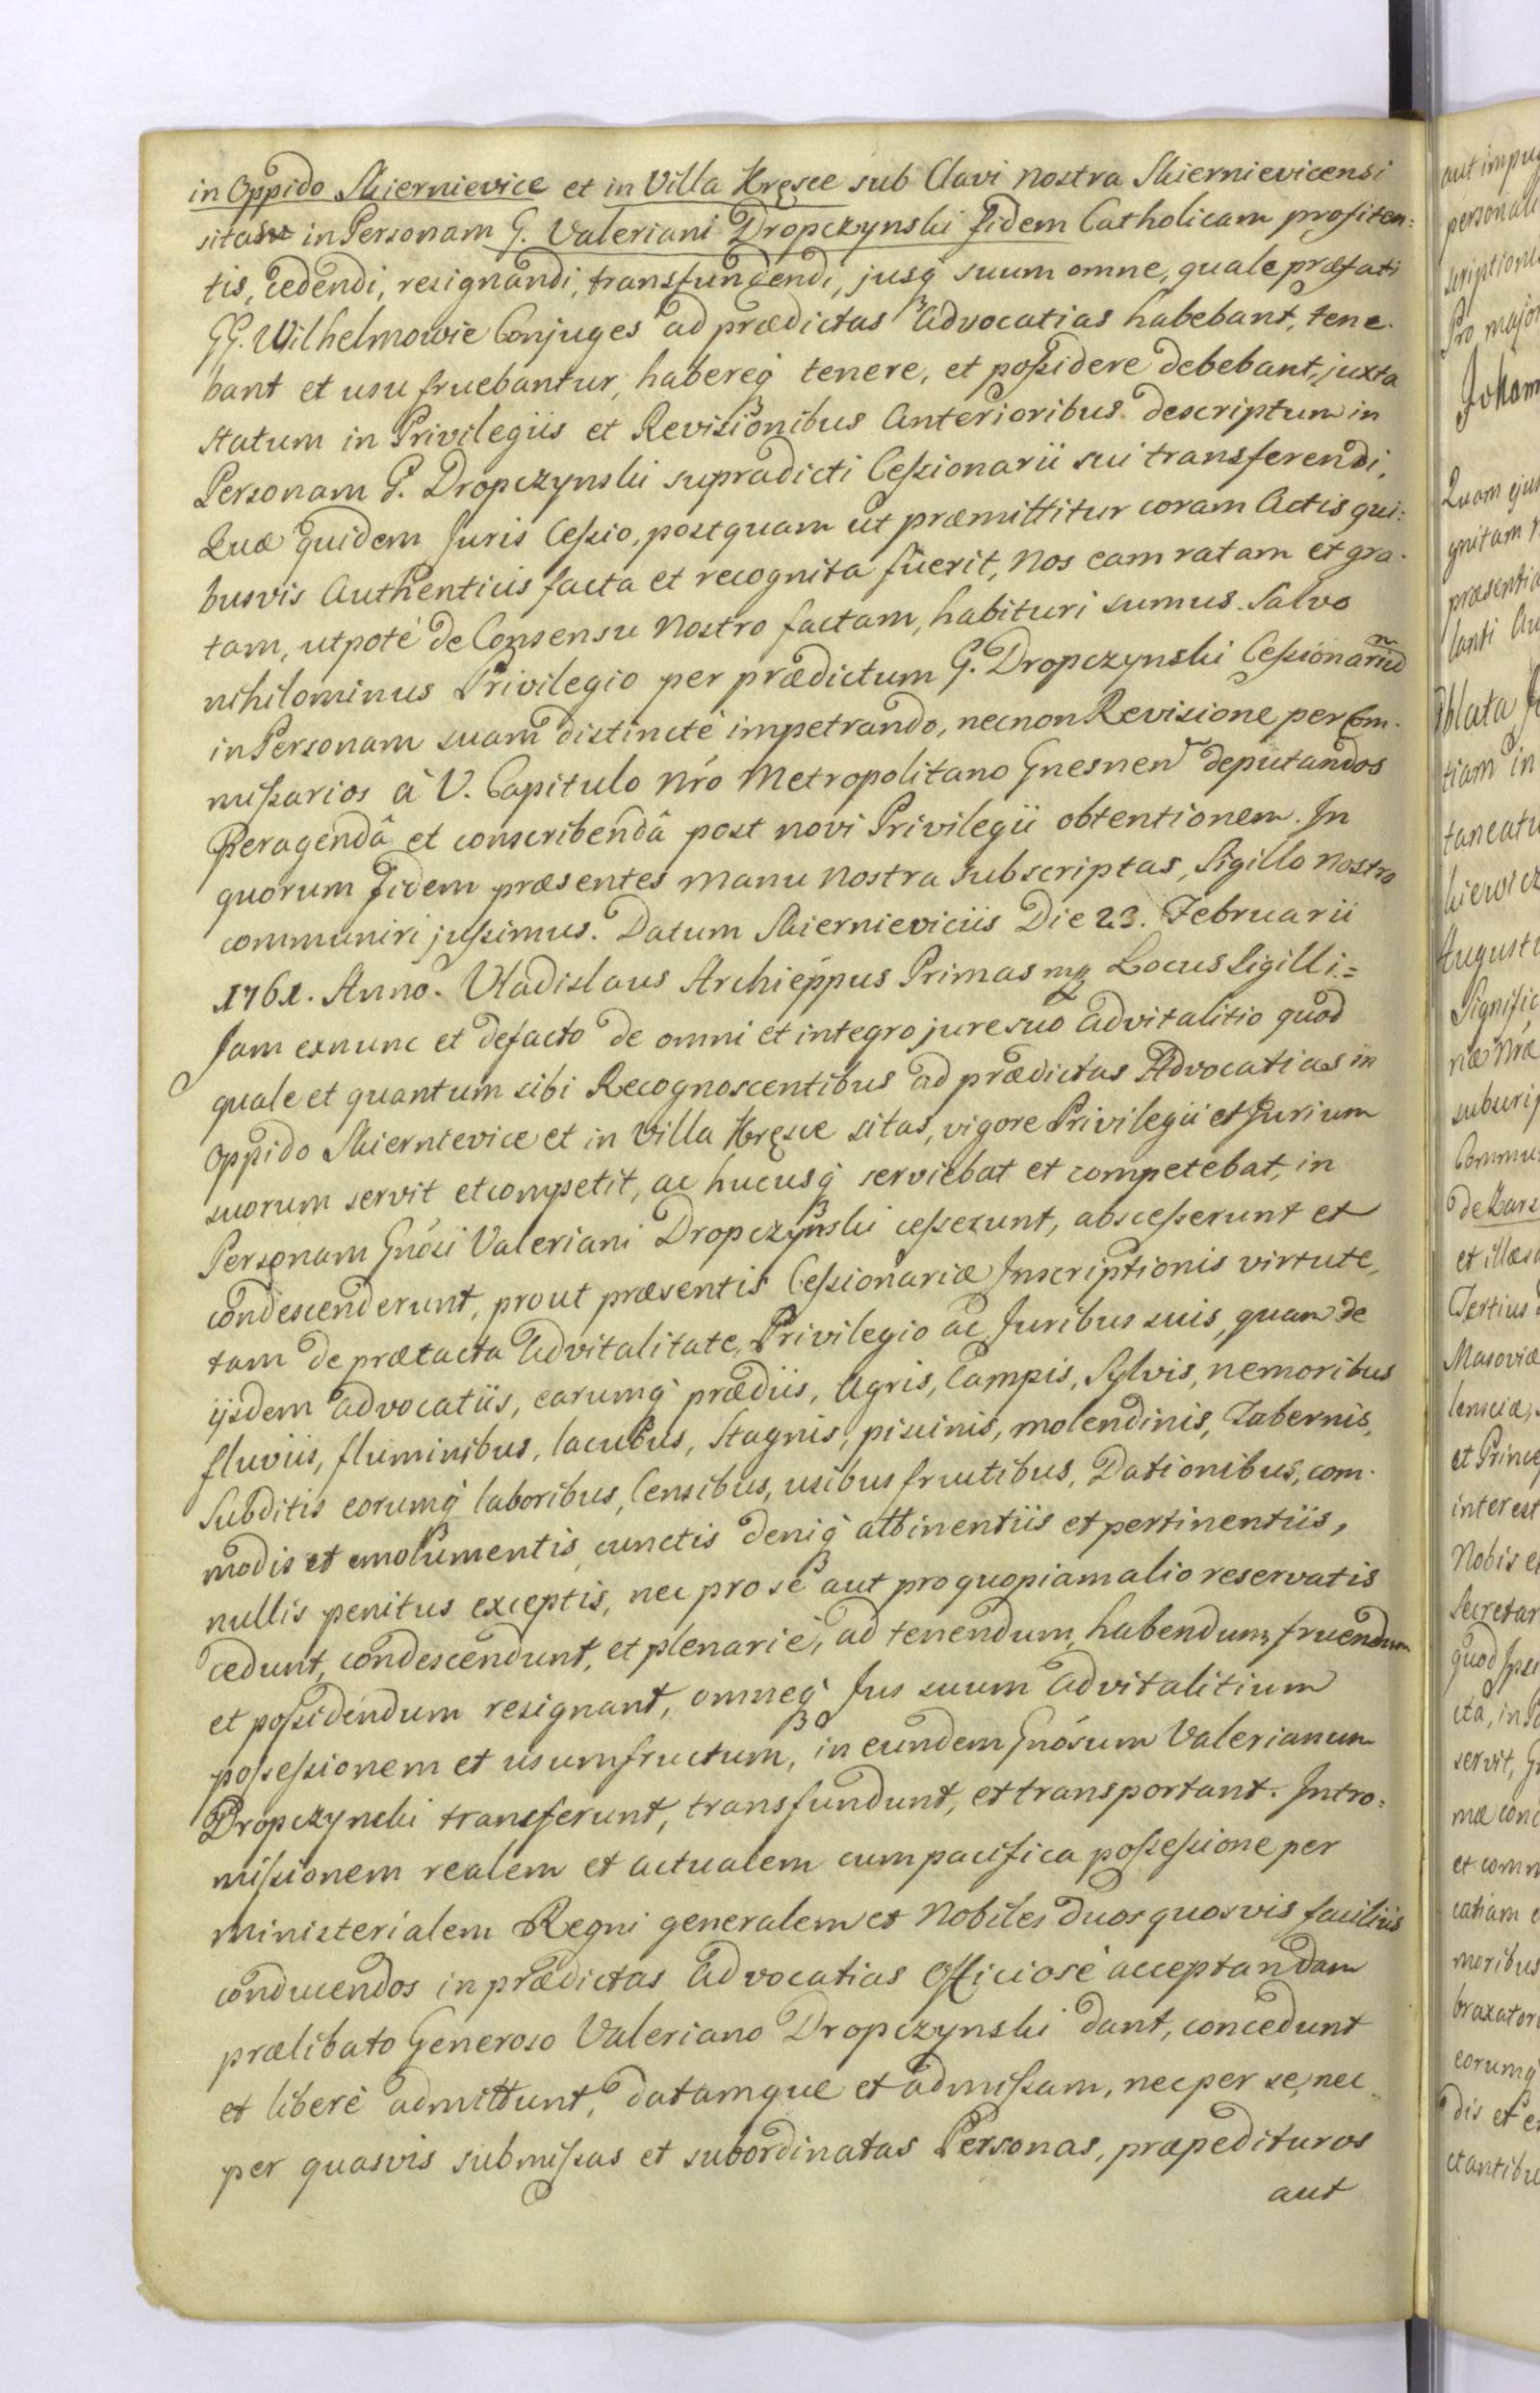 in Oppido Skiernievice et in Villa Kręsce sub Clavi nostra Skiernievicensi
sitas in Personam G. Valeriani Dropczynski fidem Catholicam profiten:
tis, cedendi, resignandi, transfundendi, jusq́ suum omne, quale præfati
GG. Wilhelmowie Conjuges ad prædictas Advocatias habebant, tene-
bant et usu fruebantur, habereq́ tenere, et poßidere debebant, juxta
statum in Privilegiis et Revisionibus Anterioribus descriptum in
Personam G. Dropczynski supradicti Ceßionarii sui transferendi.
Quæ quidem Juris Ceßio, postquam ut præmittitur coram Actis qui:
busvis Authenticis facta et recognita fuerit, Nos eam ratam et gra-
tam, utpotè de Consensu Nostro factam, habituri sumus. Salvo
nihilominus Privilegio per prædictum G. Dropczynski Ceßionariũ
in Personam suam distinctè impetrando, necnon Revisione per Com-
mißarios à V. Capitulo Nró Metropolitano Gnesnen deputandos
Peragendâ et conscribendâ post novi Privilegii obtentionem. In
quorum fidem præsentes manu nostra subscriptas, Sigillo Nostro
communiri jußimus. Datum Skierneviciis Die 23. Februarii
1761. Anno. Vladislaus Archiéppus Primas mp Locus Sigilli.=
Jam exnunc et defacto de omni et integro jure suo advitalitio quod
quale et quantum sibi Recognoscentibus ad prædictas Advocatias in
Oppido Skiernievice et in Villa Kręsce sitas, vigore Privilegii et Jurium
suorum servit et competit, ac hucusq́ serviebat et competebat, in
Personam Gnósi Valeriani Dropczynski ceßerunt, absceßerunt et
condescenderunt, prout præsentis Ceßionariæ Inscriptionis virtute,
tam de prætacta Advitalitate, Privilegio ac Juribus suis, quam de
ijsdem advocatiis, earumq́ prædiis, Agris, Campis, Sylvis, nemoribus
fluviis, fluminibus, lacubus, Stagnis, piscinis, molendinis, Tabernis,
Subditis eorumq́ laboribus, Censibus, usibus fructibus, Dationibus, com-
modis et emolumentis, cunctis deniq́ attinentiis et pertinentiis,
nullis penitus exceptis, nec pro se aut pro quopiam alio reservatis
cedunt, condescendunt, et plenariè, ad tenendum, habendum, fruendum
et poßidendum resignant, omneq́ Jus suum Advitalitium
poßeßionem et usumfructum, in eundem Gnósum Valerianum
Dropczynski transferunt, transfundunt, et transportant. Intro:
mißionem realem et actualem cum pacifica poßeßione per
ministerialem Regni generalem et Nobiles duos quosvis facilius
conducendos in prædictas Advocatias Officiosè acceptandam
prælibato Generoso Valeriano Dropczynski dant, concedunt
et liberè admittunt, datamque et admißam, nec per se, nec
per quasvis submißas et subordinatas Personas, præpedituros
aut